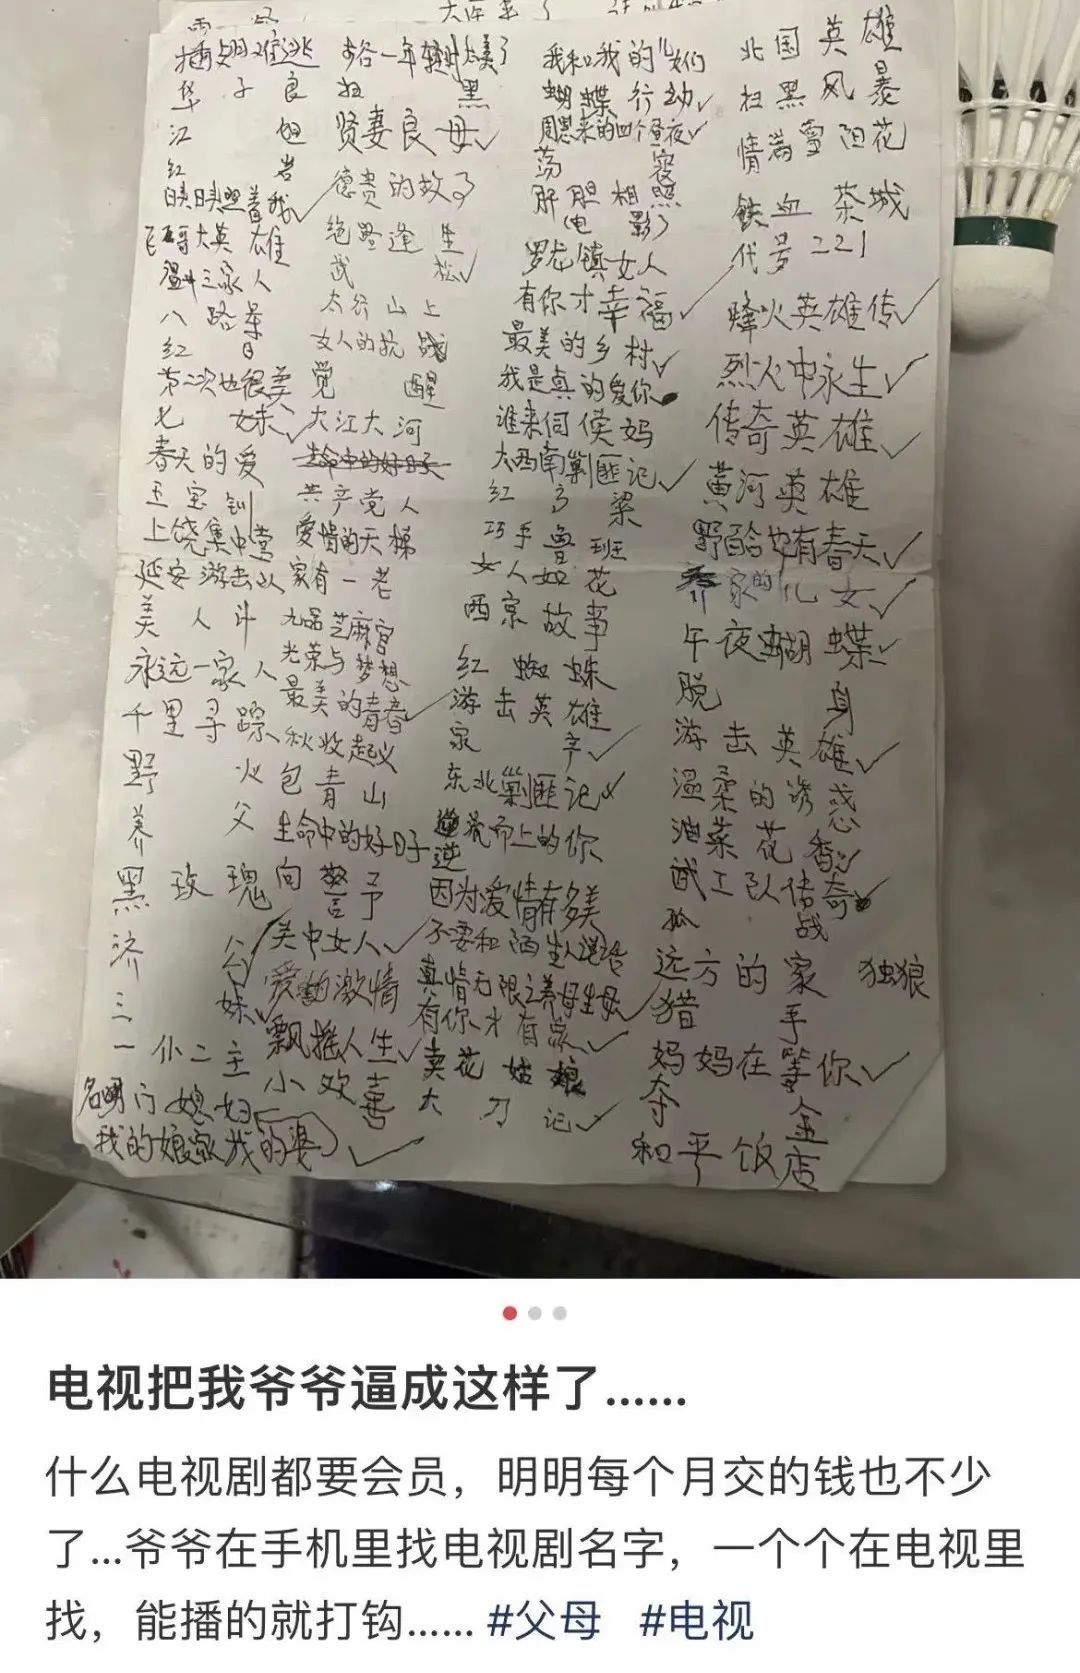 插翅难逃
华子良
江姐
红岩
映映照着我
飞哥大英雄
温州三家人
八路军
红日
第二次也很美
七妹
春天的爱
王宝钏
上饶集中营
延安游击队
美人斗
永远一家人
千里寻踪
野火
养父
黑玫瑰
济公
三妹
一仆二主
名门媳妇
我的娘家我的婆
扫黑
贤妻良母
德贵的故事
绝路逢生
武松
太行山上
女人的抗战
觉醒
大江大河
生命中的好日子
共产党人
爱情的天梯
家有一老
九品芝麻官
光荣与梦想
最美的青春
秋收起义
包青山
生命中的好日子
向警予
关中女人
爱的激情
飘摇人生
小欢喜
我和我的儿女们
蝴蝶行动
周恩来的四个昼夜
荡寇
肝胆相照
电影
罗龙镇女人
有你才幸福
最美的乡村
我是真的爱你
谁来伺候妈
大西南剿匪记
红高粱
巧手鲁班
女人如花
西京故事
红蜘蛛
游击英雄
家产
东北剿匪记
逆流而上的你
逆
因为爱情有多美
不要和陌生人说话
真情无限之养母生母
有你才有家
卖花姑娘
大刀记
北国英雄
扫黑风暴
情满雪阳花
铁血茶城
代号221
烽火英雄传
烈火中永生
传奇英雄
黄河英雄
野百合也有春天
乔家的儿女
午夜蝴蝶
脱身
游击英雄
温柔的诱惑
油菜花香
武工队传奇
孤战
远方的家
独狼
猎手
妈妈在等你
夺金
和平饭店
电视把我爷爷逼成这样了……
什么电视剧都要会员，明明每个月交的钱也不少
了...爷爷在手机里找电视剧名字，一个个在电视里
找，能播的就打钩…… #父母 #电视